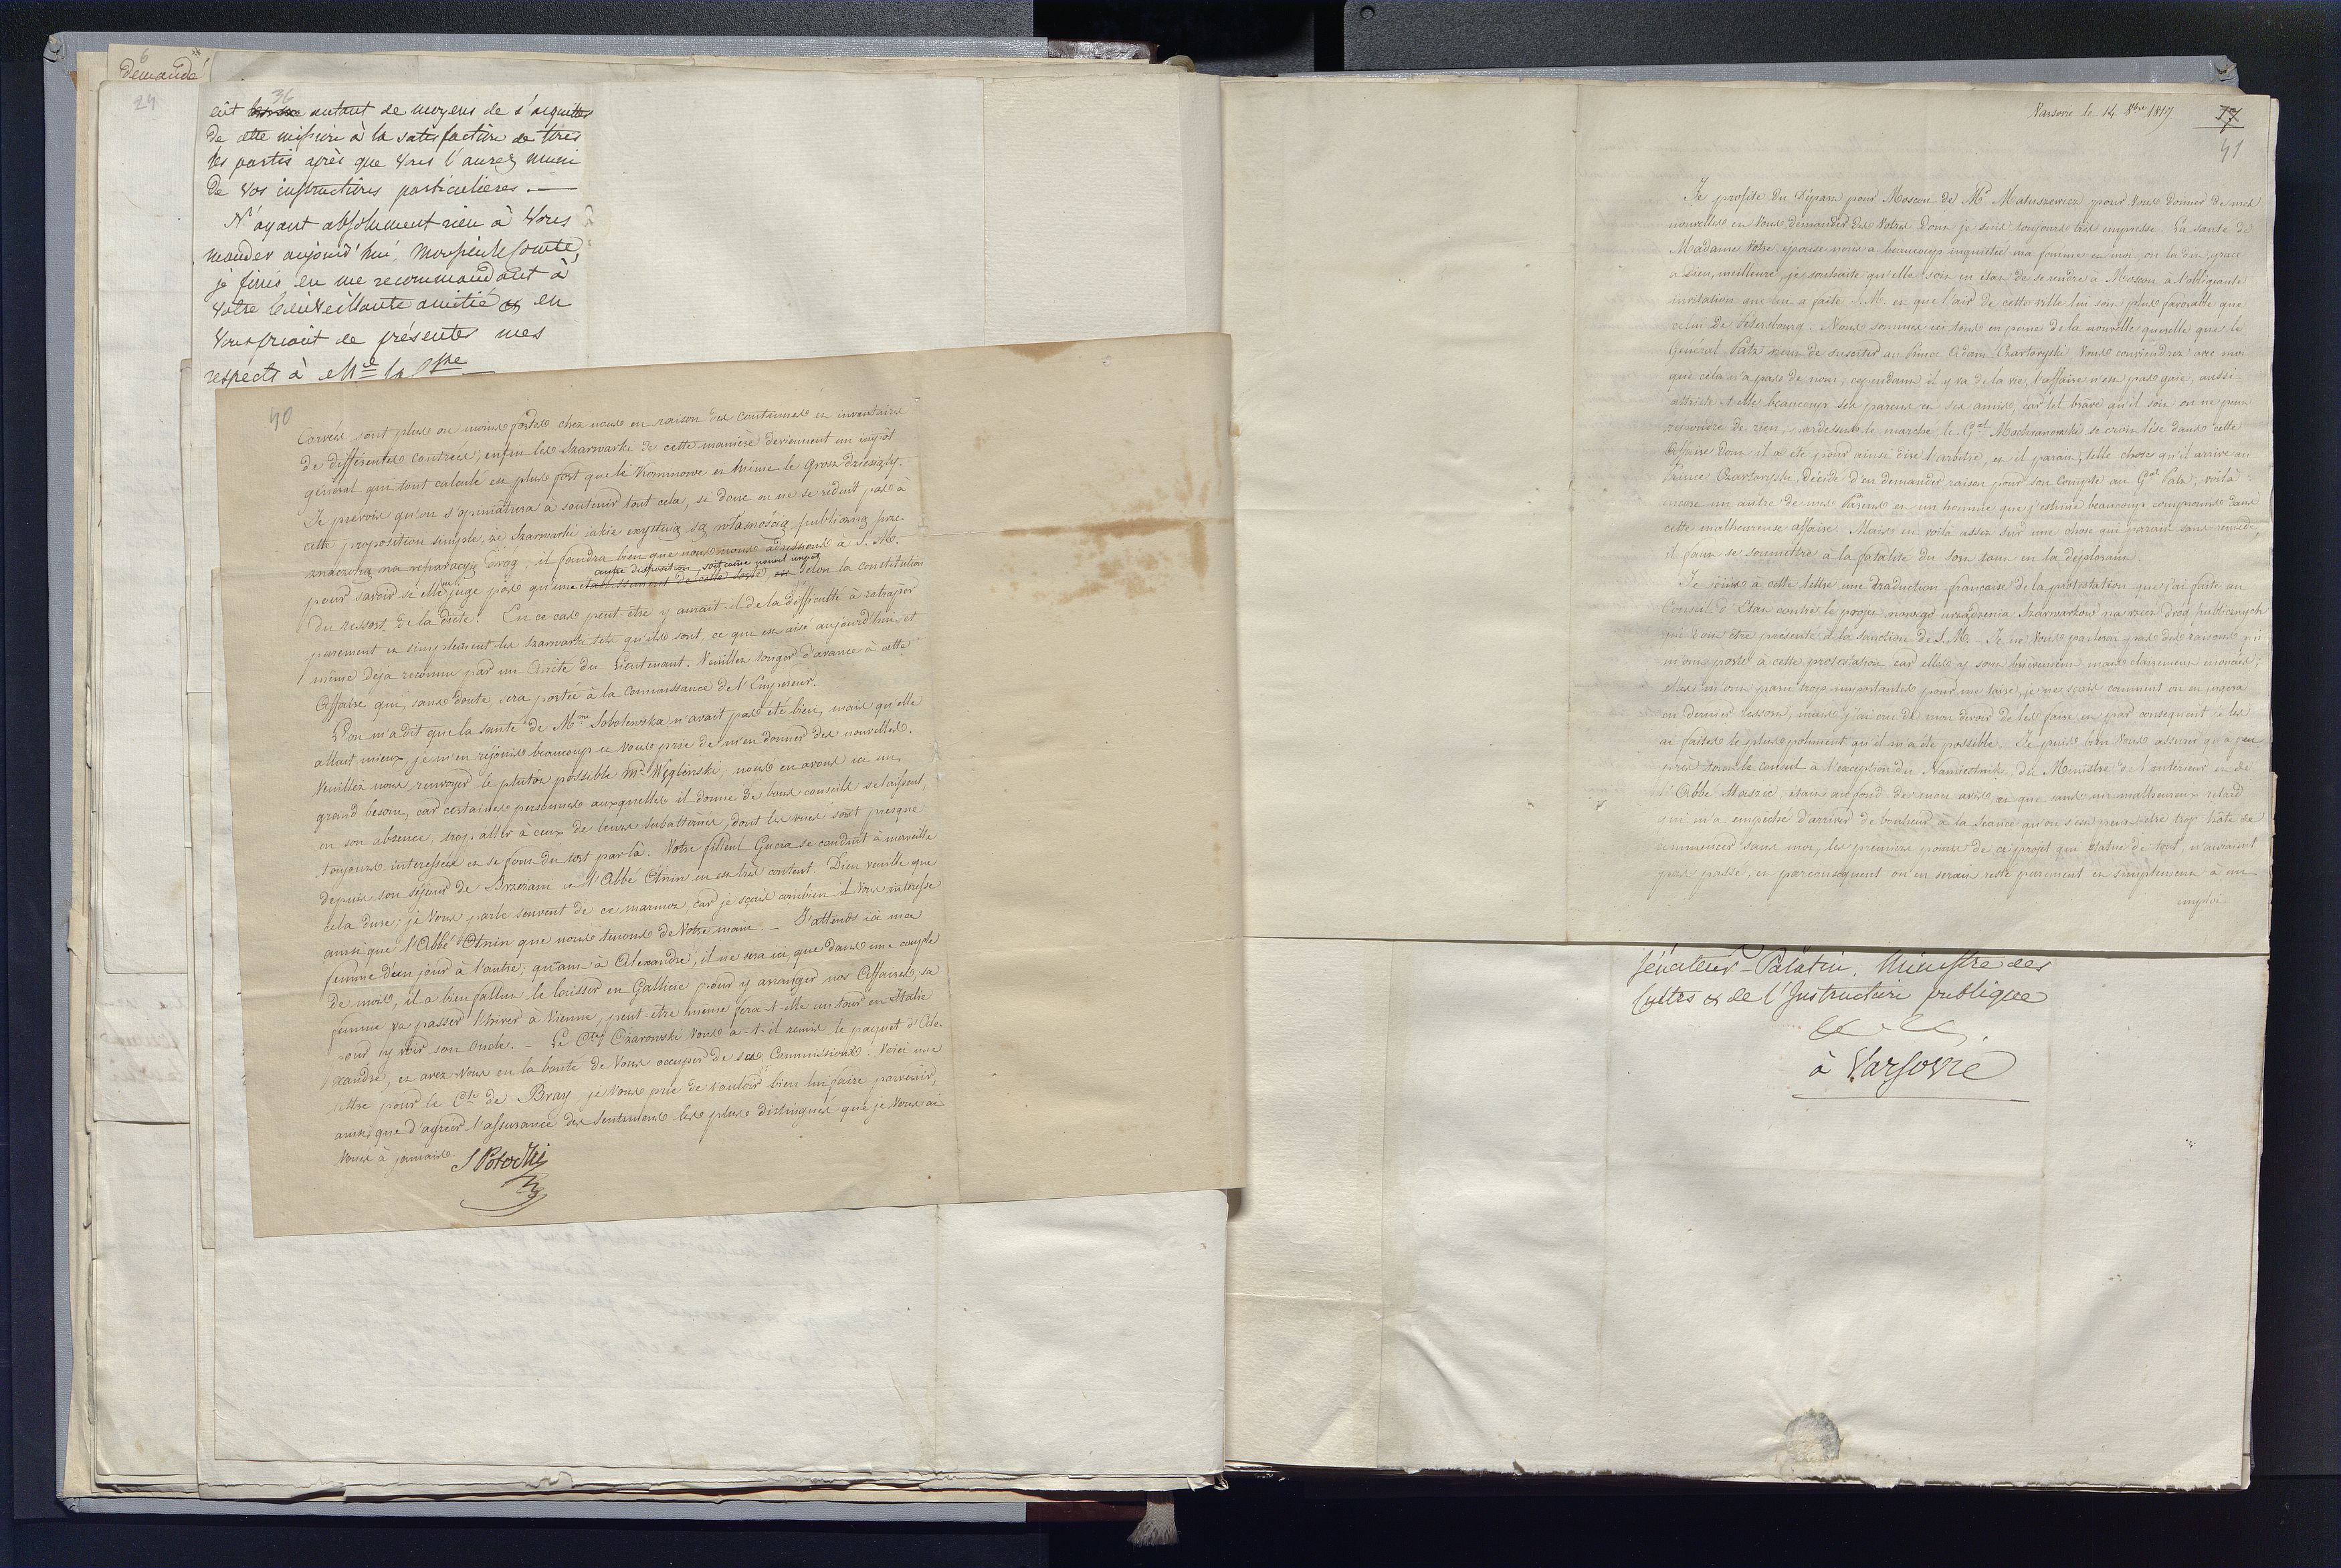 6
Demandé
24
36
eût autant de moyens de s'acquitter
de cette mission à la satisfaction de tous
les partis après que Vous l'aurez muni
de Vos instructions particulieres. —
N'ayant absolument rien à Vous
mander aujourd'hui, Monsieur le Comte,
je finis en me recommandant à
Votre bienveillante amitié & en
Vous priant de présenter mes
respects à Mde la Csse
40
Corvées sont plus ou moins fortes chez nous en raison des coutumes et inventaires
de differentes contrées; enfin les Szarwarki de cette manière deviennent un impôt
général qui tout calculé est plus fort que le Kominowe et même le Grosz dziesiąty.
Je prevois qu'on s'opiniâtrera à soutenir tout cela, si donc on ne se reduit pas à
cette proposition simple, że Szarwarki iakie exystuią są własnością publiczną prze-
znaczoną na reparacyą drog, il faudra bien que nous nous adressions à S. M.
autre disposition, soit comme nouvel impôt
pour savoir si elle ne juge pas qu'une etablissement de cette sorte est selon la constitution
du ressort de la diète. En ce cas peut-être y aurait-il de la difficulté à ratrapper
purement et simplement les Szarwarki tels qu'ils sont, ce qui est aisé aujourd'hui et
même déja reconnu par un Arrêté du Lieutenant. Veuillez songer d'avance à cette
Affaire qui, sans doute, sera portée à la connaissance de l'Empereur.
L'on m'a dit que la santé de Mme Sobolewska n'avait pas été bien, mais qu'elle
allait mieux, je m'en réjouis beaucoup et Vous prie de m'en donner des nouvelles.
Veuillez nous renvoyer le plutôt possible Mr Węgliński, nous en avons ici un
grand besoin, car certaines personnes auxquelles il donne de bons conseils se laissent,
en son absence, trop aller à ceux de leurs subalternes, dont les vues sont presque
toujours interessées et se font du tort par là. Votre filleul Gucia se conduit à merveille
depuis son séjour de Brzezani et l'Abbé Otrin en est très content. Dieu veuille que
cela dure; je Vous parle souvent de ce marmoz, car je sçais combien il Vous interesse
ainsi que l'Abbé Otrin que nous tenons de Votre main. — J'attends ici ma
femme d'un jour à l'autre; quant à Alexandre, il ne sera ici, que dans une couple
de mois, il a bien fallu le laisser en Gallicie pour y arranger nos Affaires, sa
femme va passer l'hiver à Vienne, peut-être même fera-t-elle un tour en Italie
pour y voir son Oncle. — Le Cte Ożarowski Vous a-t-il remis le paquet d'Ale-
xandre, et avez Vous eu la bonté de Vous occuper de ses Commissions. Voici une
lettre pour le Cte de Bray, je Vous prie de vouloir bien lui faire parvenir,
ainsi que d'agréer l'assurance des sentimens les plus distingués que je Vous ai
Voués à jamais.
S Potocki
Varsovie le 14 8bre 1817
37
41
Je profite du Départ pour Moscou de Mr Matuszewicz pour Vous donner de mes
nouvelles et Vous demander des Votres dont je suis toujours très empressé. La santé de
Madame Votre epouse nous a beaucoup inquiétés ma femme et moi, on la dit, grace
à Dieu, meilleure, je souhaite qu'elle soit en état de se rendre à Moscou à l'obligeante
invitation que lui a faite S. M. et que l'air de cette ville lui soit plus favorable que
celui de Pétersbourg. Nous sommes ici tous en peine de la nouvelle querelle que le
Général Patz vient de susciter au Prince Adam Czartoryski. Vous conviendrez avec moi
que cela n'a pas de nom; cependant il y va de la vie, l'affaire n'est pas gaie, aussi
attriste-t-elle beaucoup ses parens et ses amis, car tel brave qu'il soit on ne peut
repondre de rien, pardessus le marché le Gal Mokranowski se croit lésé dans cette
Affaire dont il a été pour ainsi dire l'arbitre, et il parait, telle chose qu'il arrive au
Prince Czartoryski, décidé d'en demander raison pour son compte au Gal Patz, voilà
encore un autre de mes Parens et un homme que j'estime beaucoup compromis dans
cette malheureuse affaire. Mais en voilà assez sur une chose qui parait sans remède,
il faut se soumettre à la fatalité du sort tout en la deplorant.
Je joins à cette lettre une traduction française de la protestation que j'ai faite au
Conseil d'Etat contre le projet nowego urządzenia Szarwarkow na rzecz drog publicznych
qui doit être présenté à la sanction de S. M. Je ne Vous parlerai pas des raisons qui
m'ont porté à cette protestation, car elles y sont brièvement mais clairement énoncées;
elles m'ont paru trop importantes pour me taire, je ne sçais comment on en jugera
en dernier ressort, mais j'ai cru de mon devoir de les faire, et par consequent je les
ai faites le plus poliment qu'il m'a été possible. Je puis bien Vous assurer qu'à peu
près tout le conseil à l'exception du Namiestnik, du Ministre de l'interieur et de
l'Abbé Staszic, etait au fond de mon avis et que sans un malheureux retard
qui m'a empêché d'arriver de bonheur à la séance qu'on s'est peut-être trop hâté de
commencer sans moi, les premiers points de ce projet qui statue de tout, n'auraient
pas passé, et par consequent on en serait resté purement et simplement à un
emploi
Sénateur-Palatin, Ministre des
Cultes & de l'Instruction publique
&c &c
à Varsovie